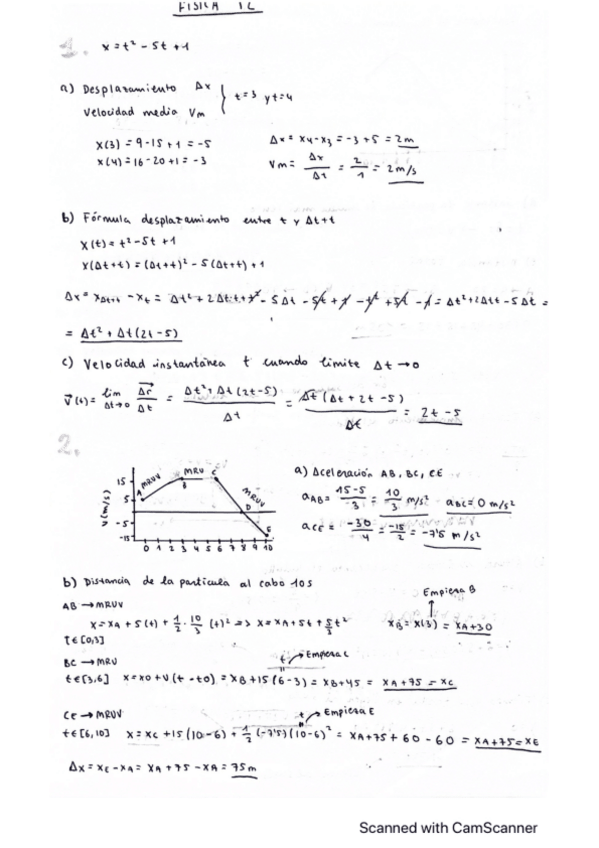 FISICA 1L
1. x = t² - 5t + 1
a) Desplazamiento Δx
Velocidad media Vm } t=3 y t=4
x(3) = 9-15+1 = -5
x(4) = 16-20+1 = -3
Δx = x4 - x3 = -3+5 = 2m
Vm = Δx/Δt = 2/1 = 2m/s
b) Fórmula desplazamiento entre t y Δt+t
x(t) = t² - 5t + 1
x(Δt+t) = (Δt+t)² - 5(Δt+t) + 1
Δx = xΔt+t - xt = Δt² + 2Δt·t + t² - 5Δt - 5t + 1 - t² + 5t - 1 = Δt² + 2Δtt - 5Δt =
= Δt² + Δt(2t-5)
c) Velocidad instantánea t cuando limite Δt→0
V(t) = lim Δt→0 Δr/Δt = Δt² + Δt(2t-5)/Δt = Δt(Δt+2t-5)/Δt = 2t-5
2.
v(m/s)
15
5
-5
-15
A MRUV B MRU C MRUV D E
0 1 2 3 4 5 6 7 8 9 10
a) Aceleración AB, BC, CE
aAB = 15-5/3 = 10/3 m/s² aBC = 0 m/s²
aCE = -30/4 = -15/2 = -7'5 m/s²
b) Distancia de la partícula al cabo 10s
AB → MRUV
Empieza B
x = xA + 5(t) + 1/2 · 10/3 (t)² => x = xA + 5t + 5/3 t²
xB = x(3) = xA+30
t∈[0,3]
BC → MRU
t → Empieza C
t∈[3,6] x = x0 + v(t-t0) = xB + 15(6-3) = xB+45 = xA+75 = xC
CE → MRUV
t → Empieza E
t∈[6,10] x = xC + 15(10-6) + 1/2(-7'5)(10-6)² = xA+75+60-60 = xA+75 = xE
Δx = xE - xA = xA + 75 - xA = 75m
Scanned with CamScanner